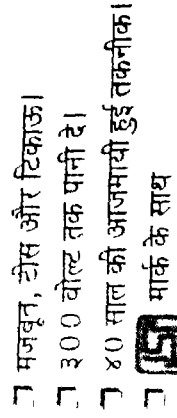 मजबूत, ठोस और टिकाऊ।
३०० वोल्ट तक पानी दे।
४० साल की आजमायी हुई तकनीक।
मार्क के साथ